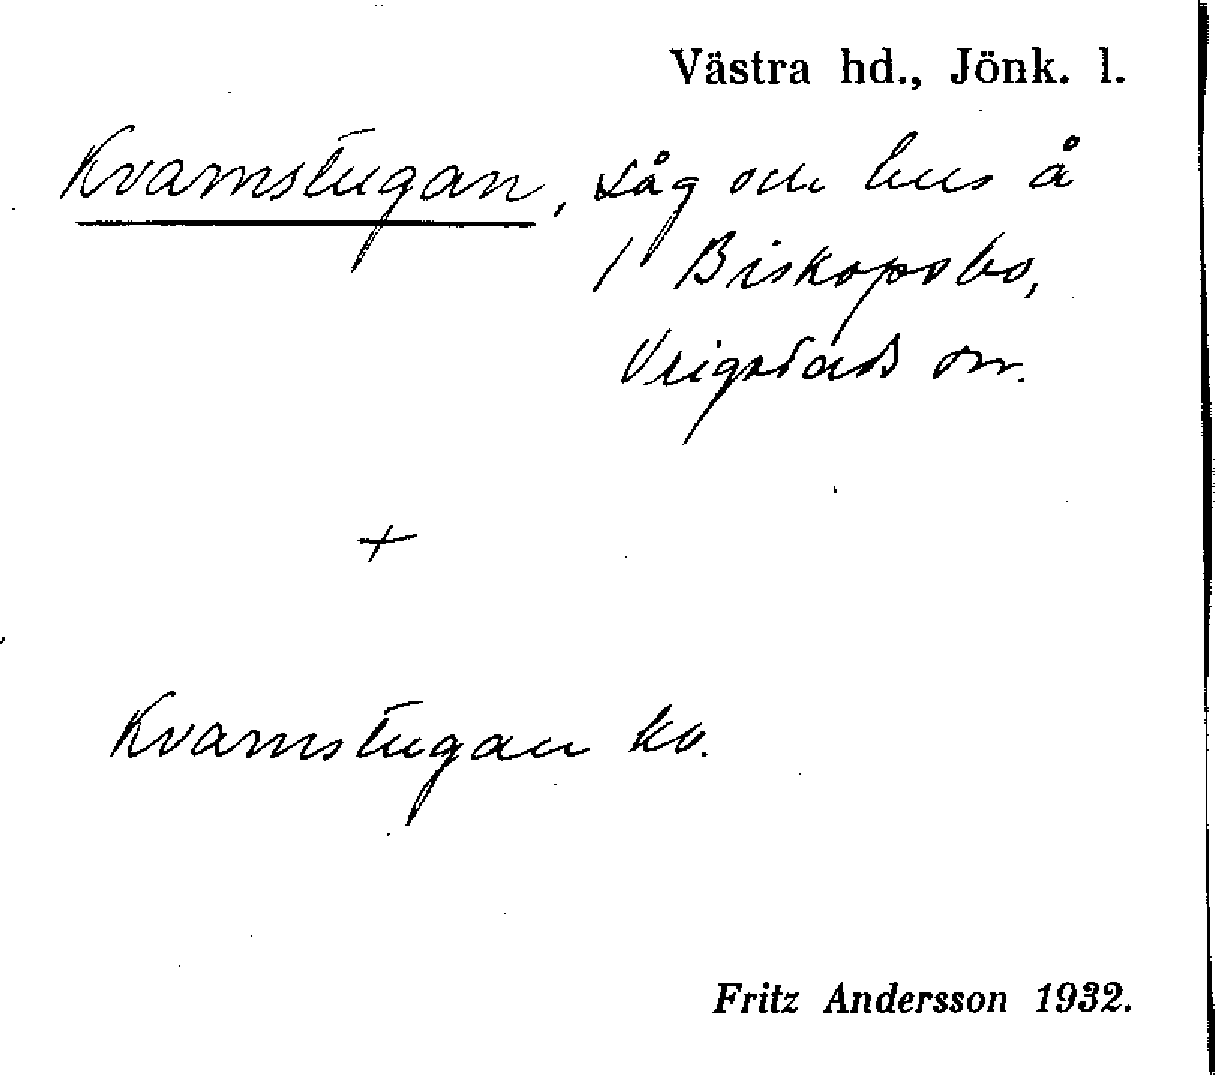 Västra hd., Jönk. l.
Kvarnstugan, såg och hus å
1 Biskopsbo,
Vrigstads sn.
+
Kvarnstugan ko.
Fritz Andersson 1932.